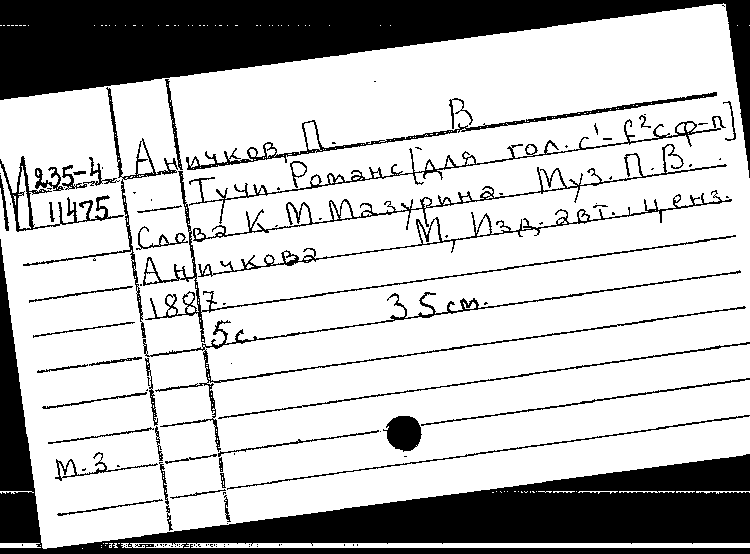 Аничков, П. В.
М 235-4
11475
Тучи. Романс [для гол. c¹-f² с ф-п]
Слова К. М. Мазурина. Муз. П. В.
Аничкова М., Изд. авт., ценз.
1887.
5 с. 35 см.
м. з.